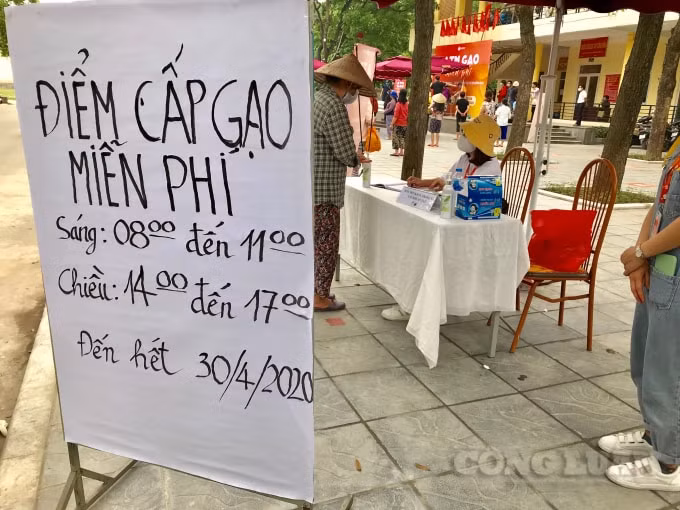 ĐIỂM CẤP GẠO
MIỄN PHÍ
Sáng: 08⁰⁰ đến 11⁰⁰
Chiều: 14⁰⁰ đến 17⁰⁰
Đến hết 30/4/2020
ATM GẠO
CÔNG LUẬN